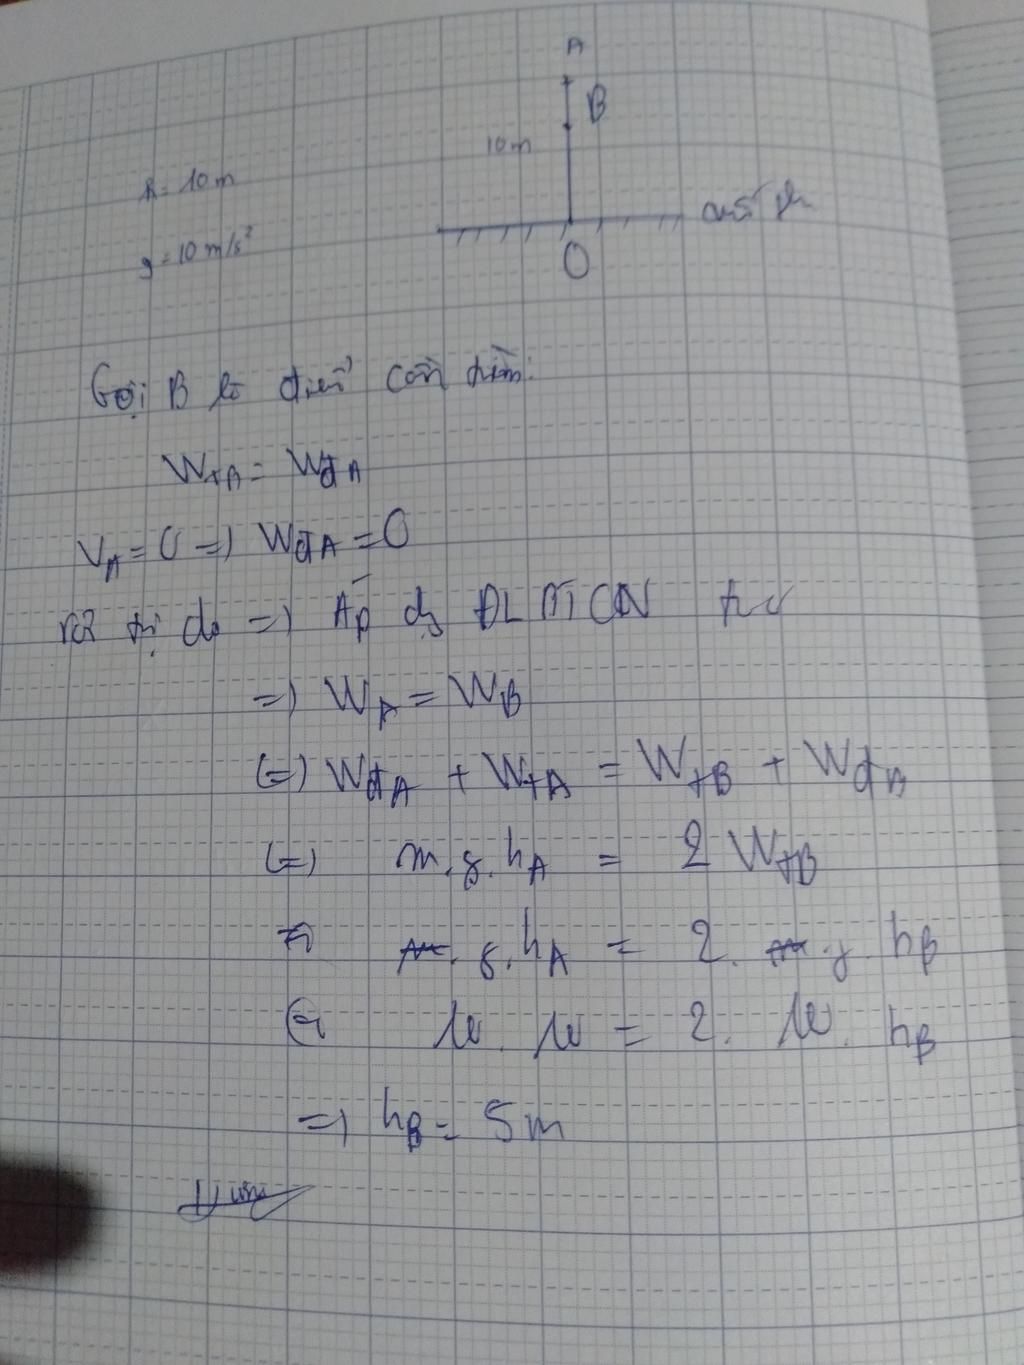 A
B
10m
h = 10m
g = 10 m/s²
O
Gọi B là điểm cần tìm:
WtA = WđA
VA = 0 => WđA = 0
rơi tự do => Áp dg ĐLBTCN
=> WA = WB
(=) WđA + WtA = WtB + WđA
(=) m.g.hA = 2 WtB
m.g.hA = 2.m.g.hB
10.10 = 2.10.hB
=> hB = 5m